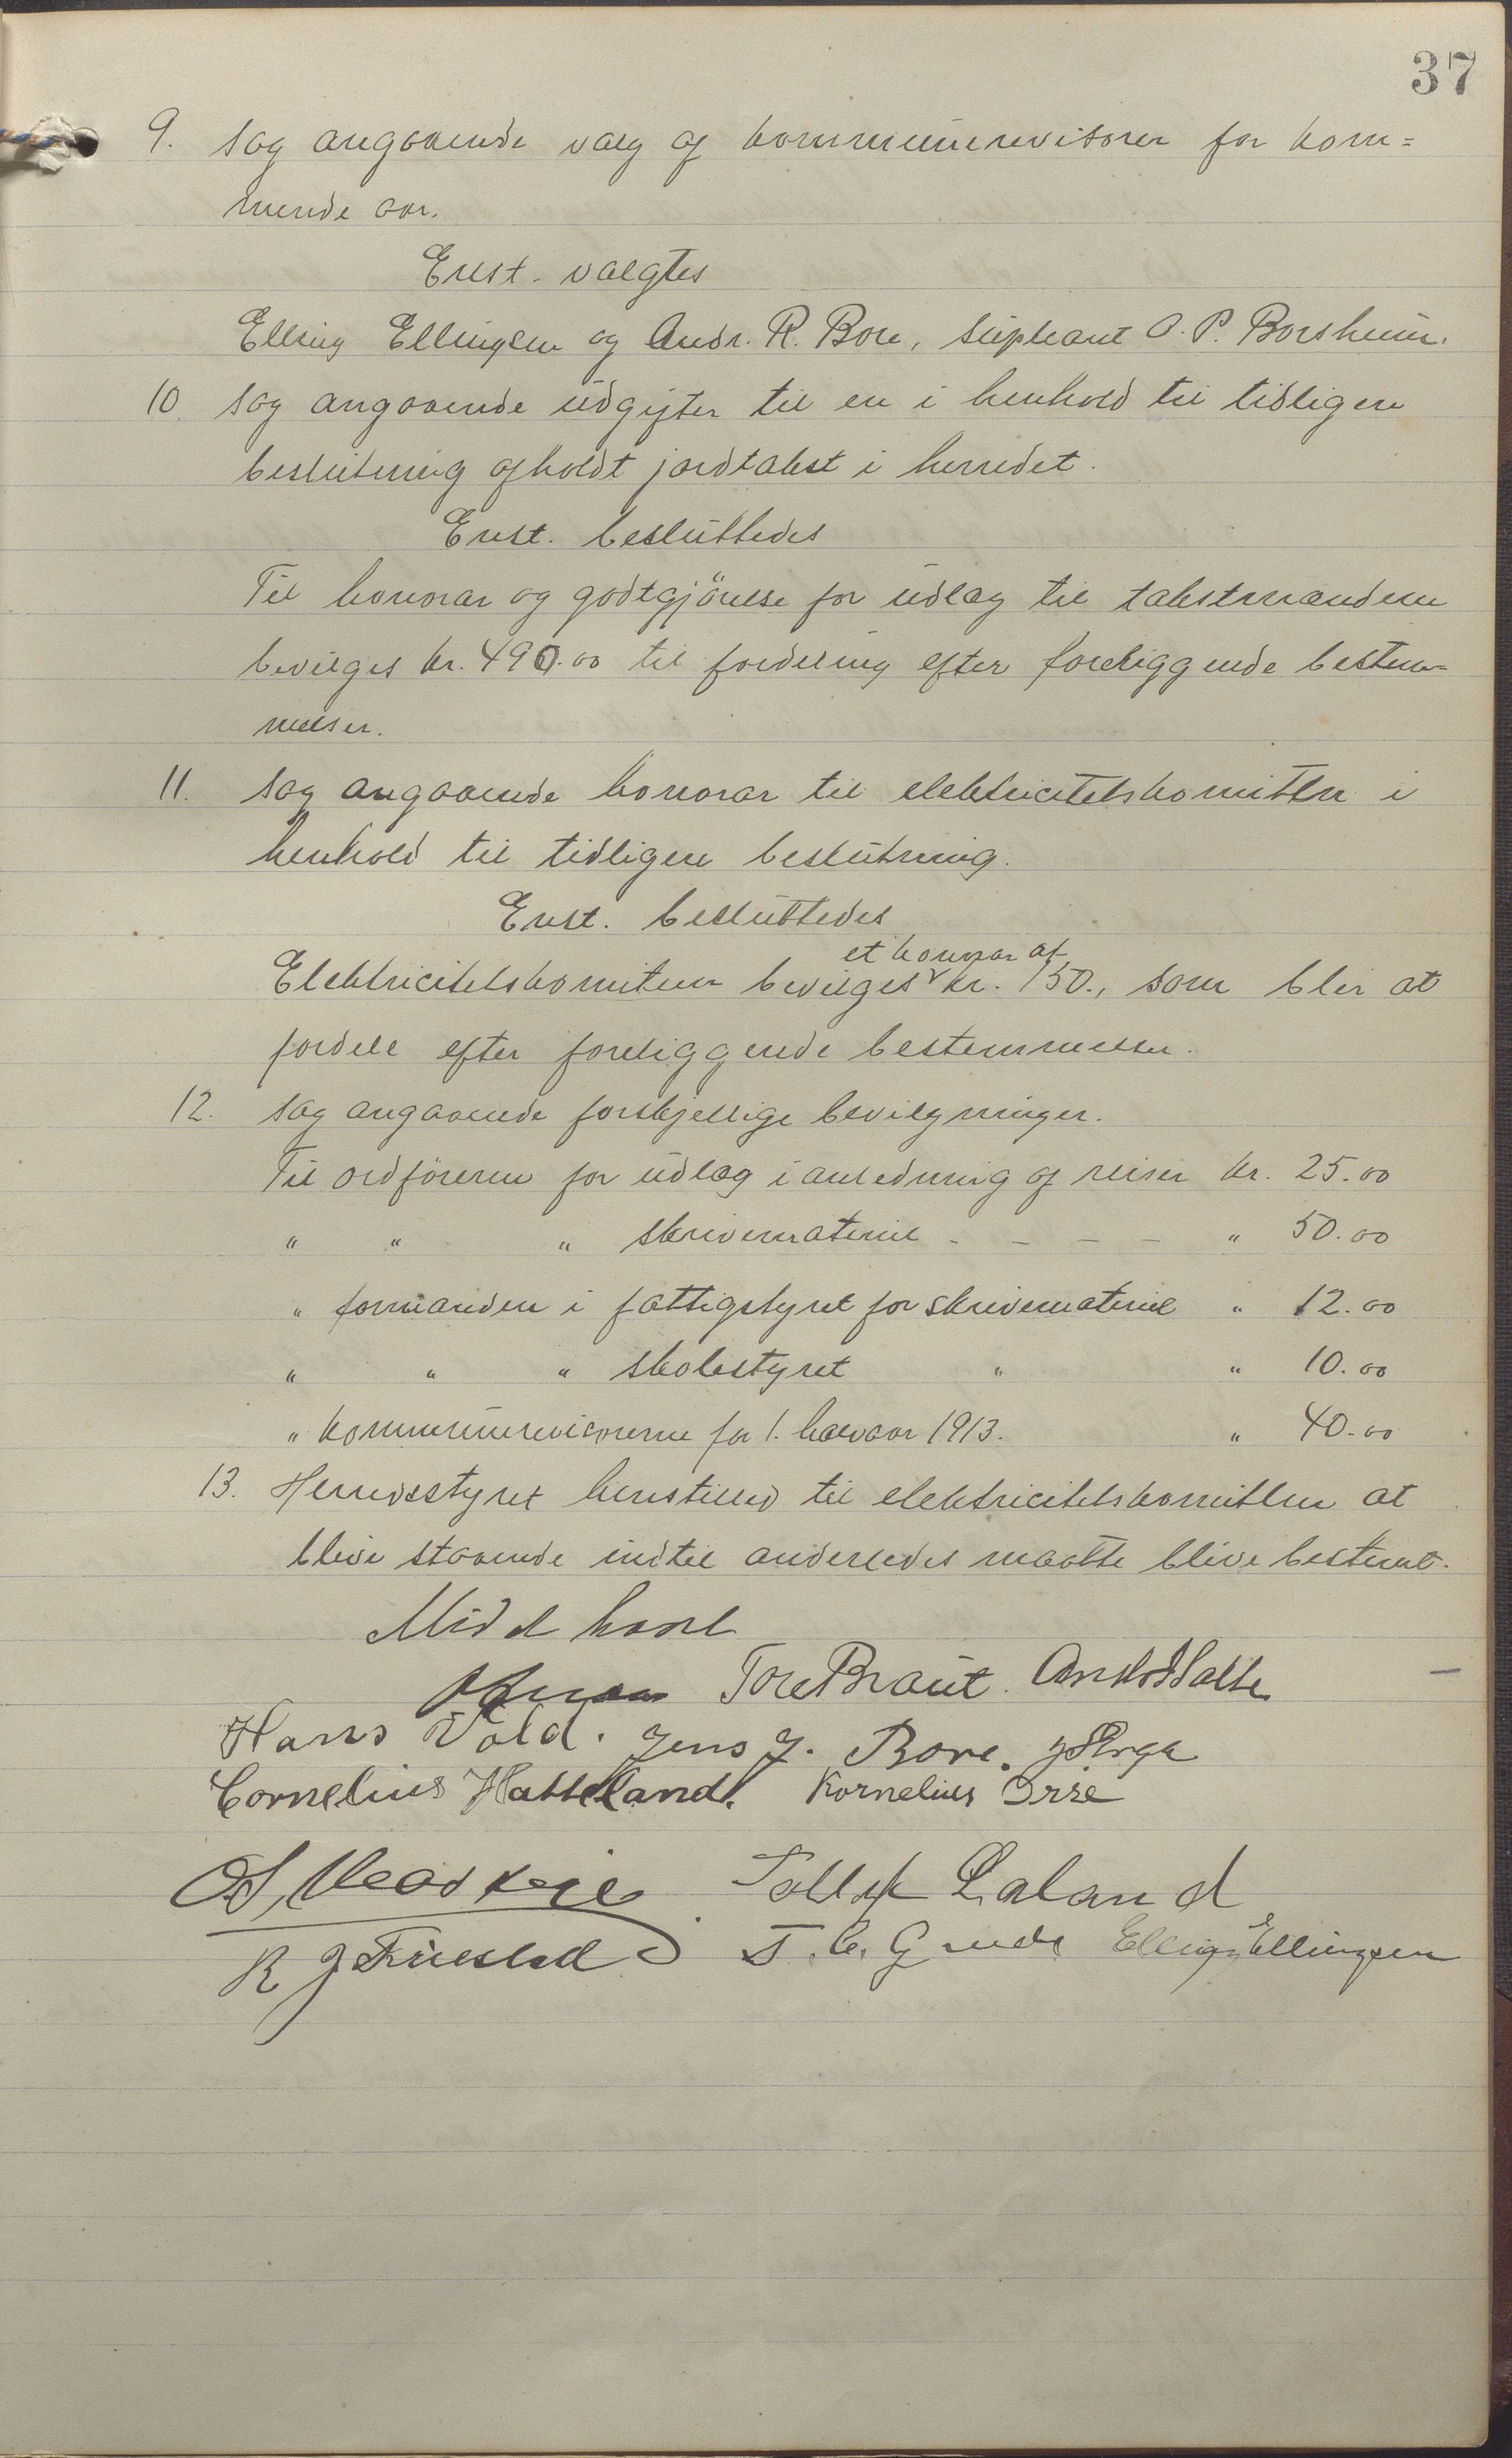 37
9. Sag angaaende valg af kommunerevisorer for kom=
mende aar.
Enst. valgtes
Elling Ellingsen og Andr. R. Bore, supleant O. P. Borsheim.
10. Sag angaaende udgifter til en i henhold til tidligere
beslutning afholdt jordtakst i herredet.
Enst. besluttedes
Til honorar og godtgjörelse for udlæg til takstmændene
bevilges kr. 490.00 til fordeling efter foreliggende bestem=
melser.
11. Sag angaaende honorar til elektricitetskomitéen i
henhold til tidligere beslutning.
Enst. besluttedes
et honorar af
Elektricitetskomiteen bevilges kr. 150., som blir at
fordele efter foreliggende bestemmelser.
12. Sag angaaende forskjellige bevilgninger.
Til ordföreren for udlæg i anledning af reiser kr. 25.00
" " " skrivemateriel - - - - " 50.00
" formanden i fattigstyret for skrivemateriel " 12.00
" " " skolestyret " " 10.00
" kommunerevisorerne for 1. halvaar 1913. " 40.00
13. Herredsstyret henstilled til elektricitetskomitéen at
blive staaende indtil anderledes maatte blive bestemt.
Mødet hævet
Tore Braut.
Hans Vold. Jens J. Bore.
Cornelius Hatteland. Kornelius Orre
Tollef Laland
T. C. Grude Elling Ellingsen